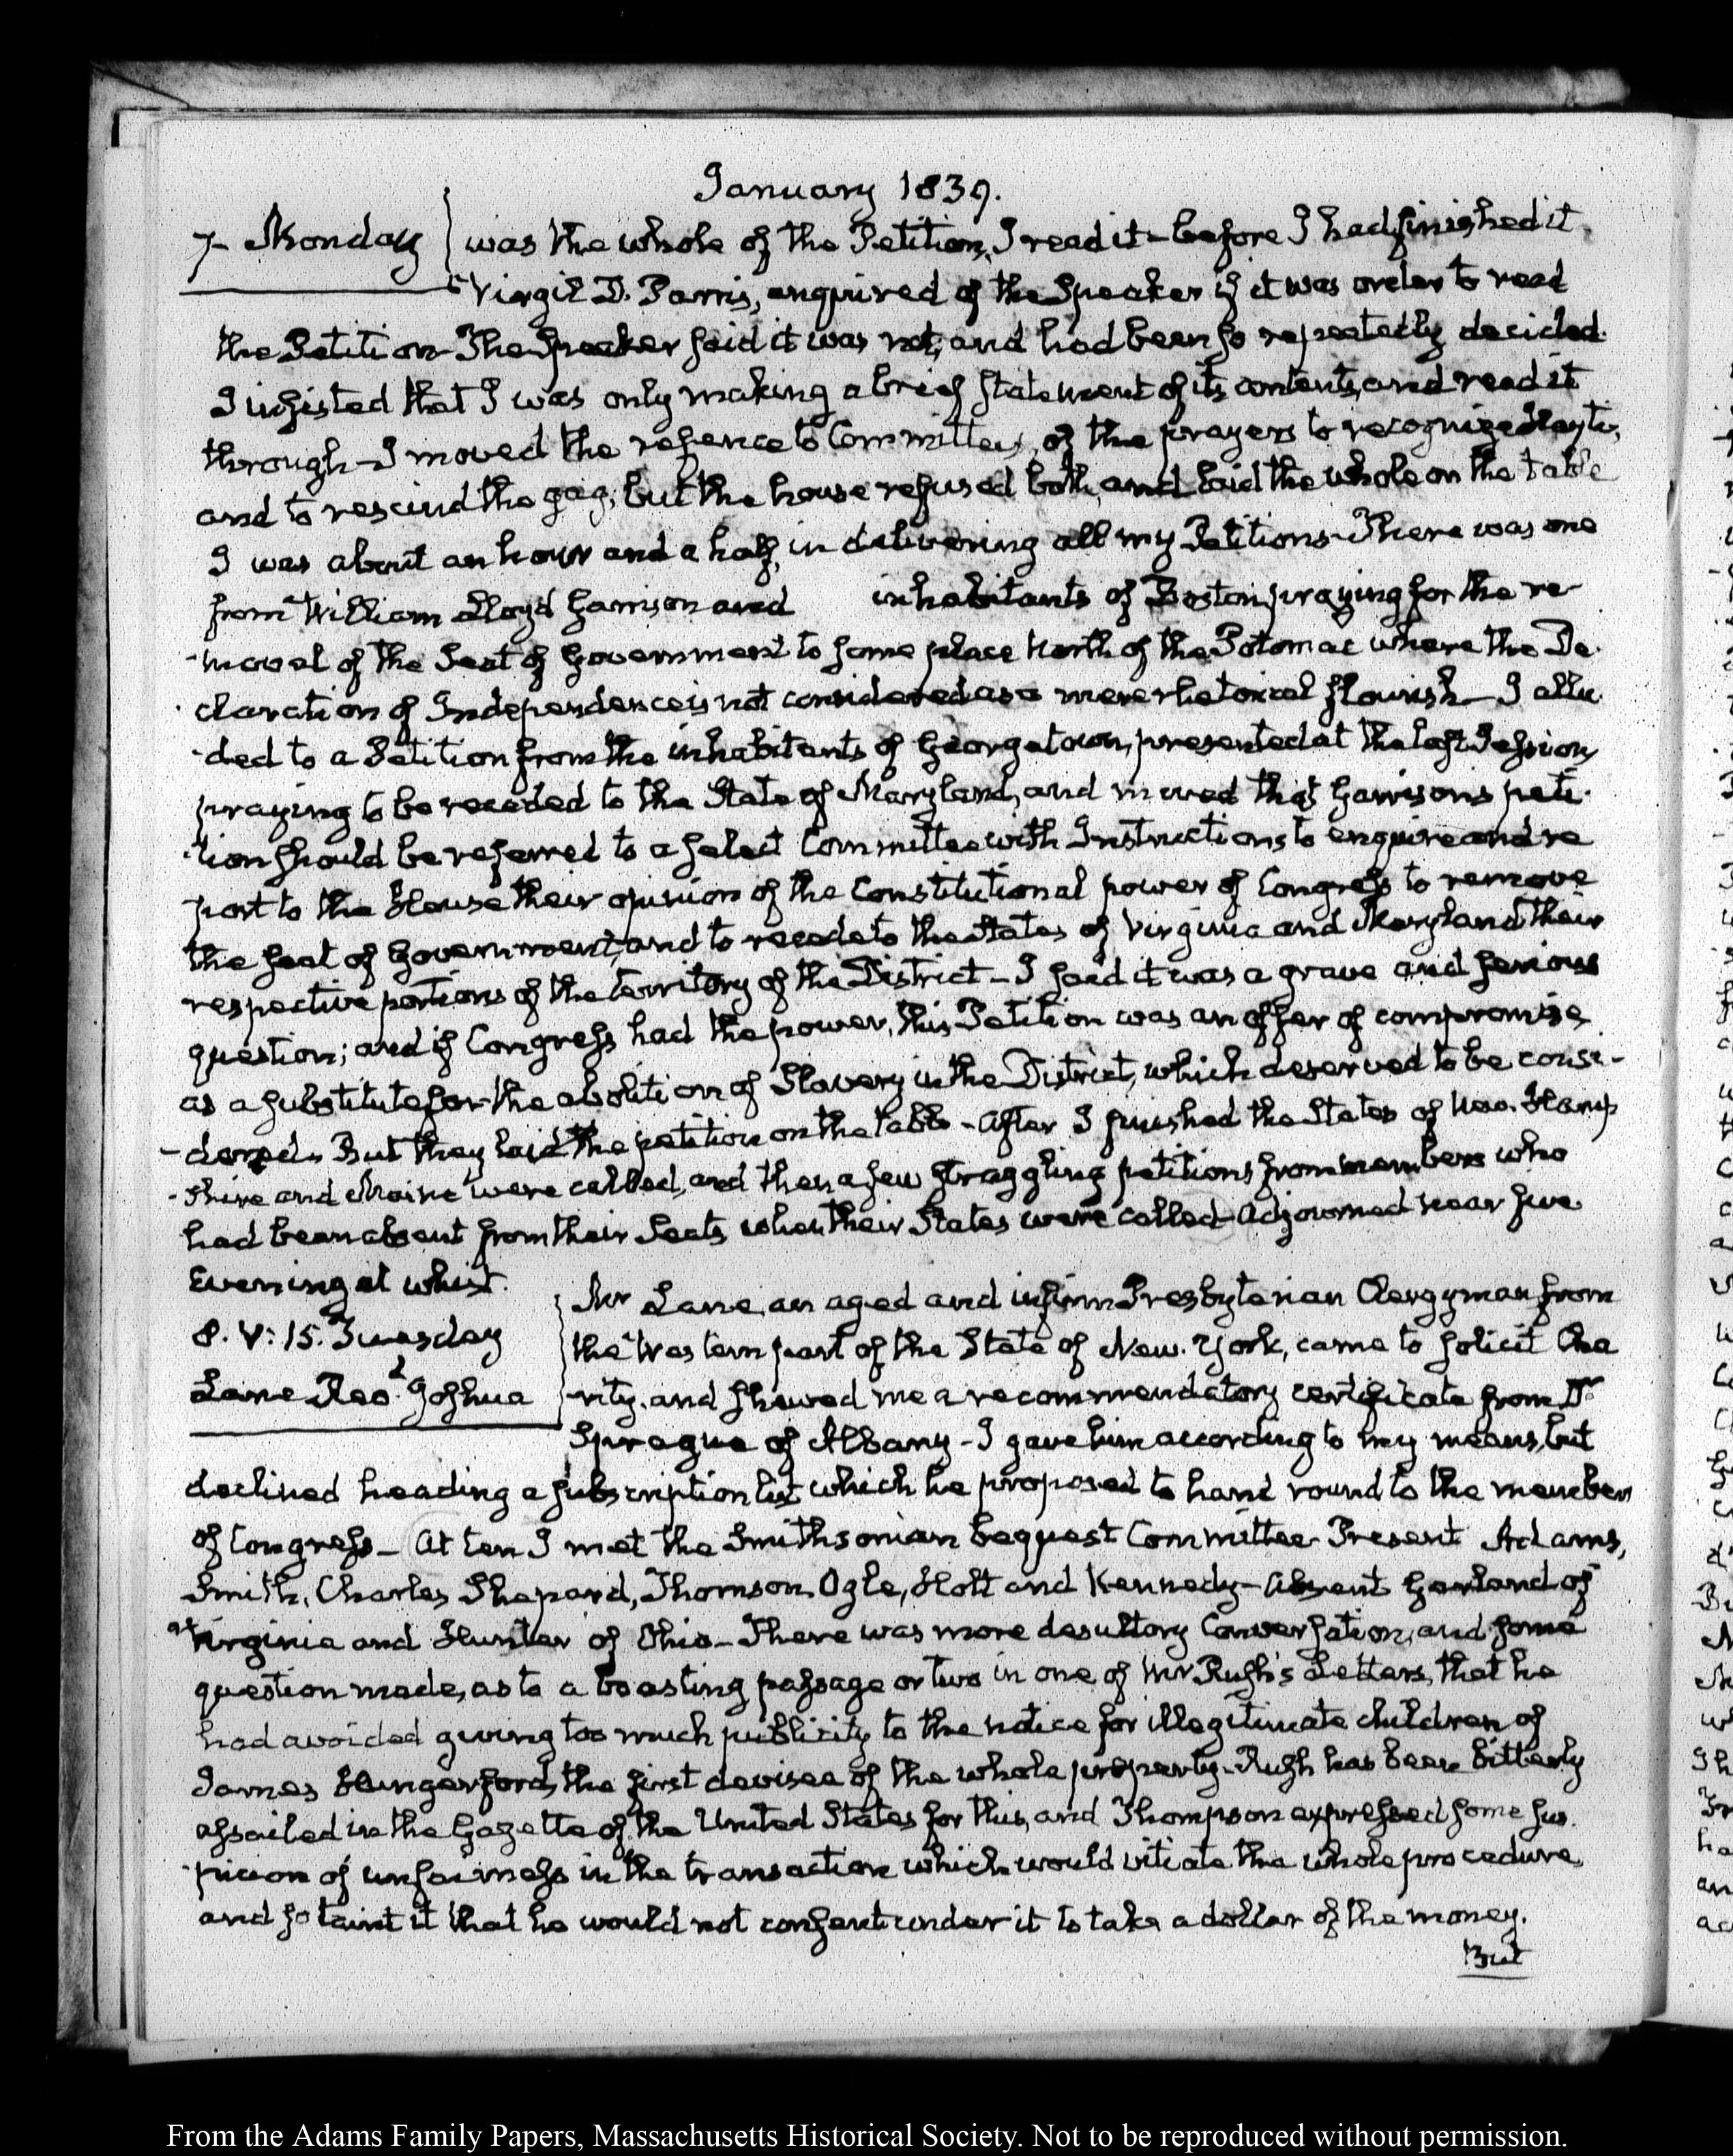 January 1839.
7. Monday
was the whole of the Petition, I read it – before I had finished it
Virgil D. Parris, enquired of the Speaker if it was order to read
the Petition – The Speaker said it was not, and had been so repeatedly decided.
I insisted that I was only making a brief statement of its contents, and read it
through – I moved the refence to Committees, of the prayers to recognize Hayti,
and to rescind the gag, but the house refused both, and laid the whole on the table
I was about an hour and a half, in delivering all my Petitions – There was one
from William Lloyd Garrison and inhabitants of Boston praying for the re-
-moval of the Seat of Government to some place North of the Potomac where the De-
claration of Independence is not considered as a mere rhetorical flourish – I allu-
-ded to a Petition from the inhabitants of Georgetown, presented at the last Session,
praying to be receded to the State of Maryland, and moved that Garrison's peti-
-tion should be referred to a select Committee with Instructions to enquire and re
port to the House their opinion of the Constitutional power of Congress to remove
the seat of Government, and to recede to the States of Virginia and Maryland their
respective portions of the territory of the District – I said it was a grave and serious
question; and if Congress had the power, this Petition was an offer of compromise
as a substitute for the abolition of Slavery in the District, which deserved to be consi-
-dered. But they laid the petition on the table – After I finished the States of New-Hamp
-shire and Maine were called, and then a few straggling petitions from members who
had been absent from their Seats when their States were called – Adjourned near five.
Evening at whist.
8. V: 15. Tuesday
Lane Revd. Joshua
Mr Lane, an aged and infirm Presbyterian Clergyman from
the Western part of the State of New-York, came to solicit Cha
-rity, and shewed me a recommendatory certificate from Dr
Sprague of Albany – I gave him according to my means, but
declined heading a subscription list which he proposed to hand round to the members
of Congress – At ten I met the Smithsonian bequest Committee – Present Adams,
Smith, Charles Shepard, Thomson, Ogle, Holt and Kennedy – Absent Garland of
Virginia and Hunter of Ohio – There was more desultory Conversation, and some
question made, as to a boasting passage or two in one of Mr Rush's Letters, that he
had avoided giving too much publicity to the notice for illegitimate children of
James Hungerford, the first devisee of the whole property. Rush has been bitterly
assailed in the Gazette of the United States for this, and Thompson expressed some sus-
-picion of unfairness in the transaction which would vitiate the whole procedure,
and so taint it that he would not consent under it to take a dollar of the money.
But
From the Adams Family Papers, Massachusetts Historical Society. Not to be reproduced without permission.